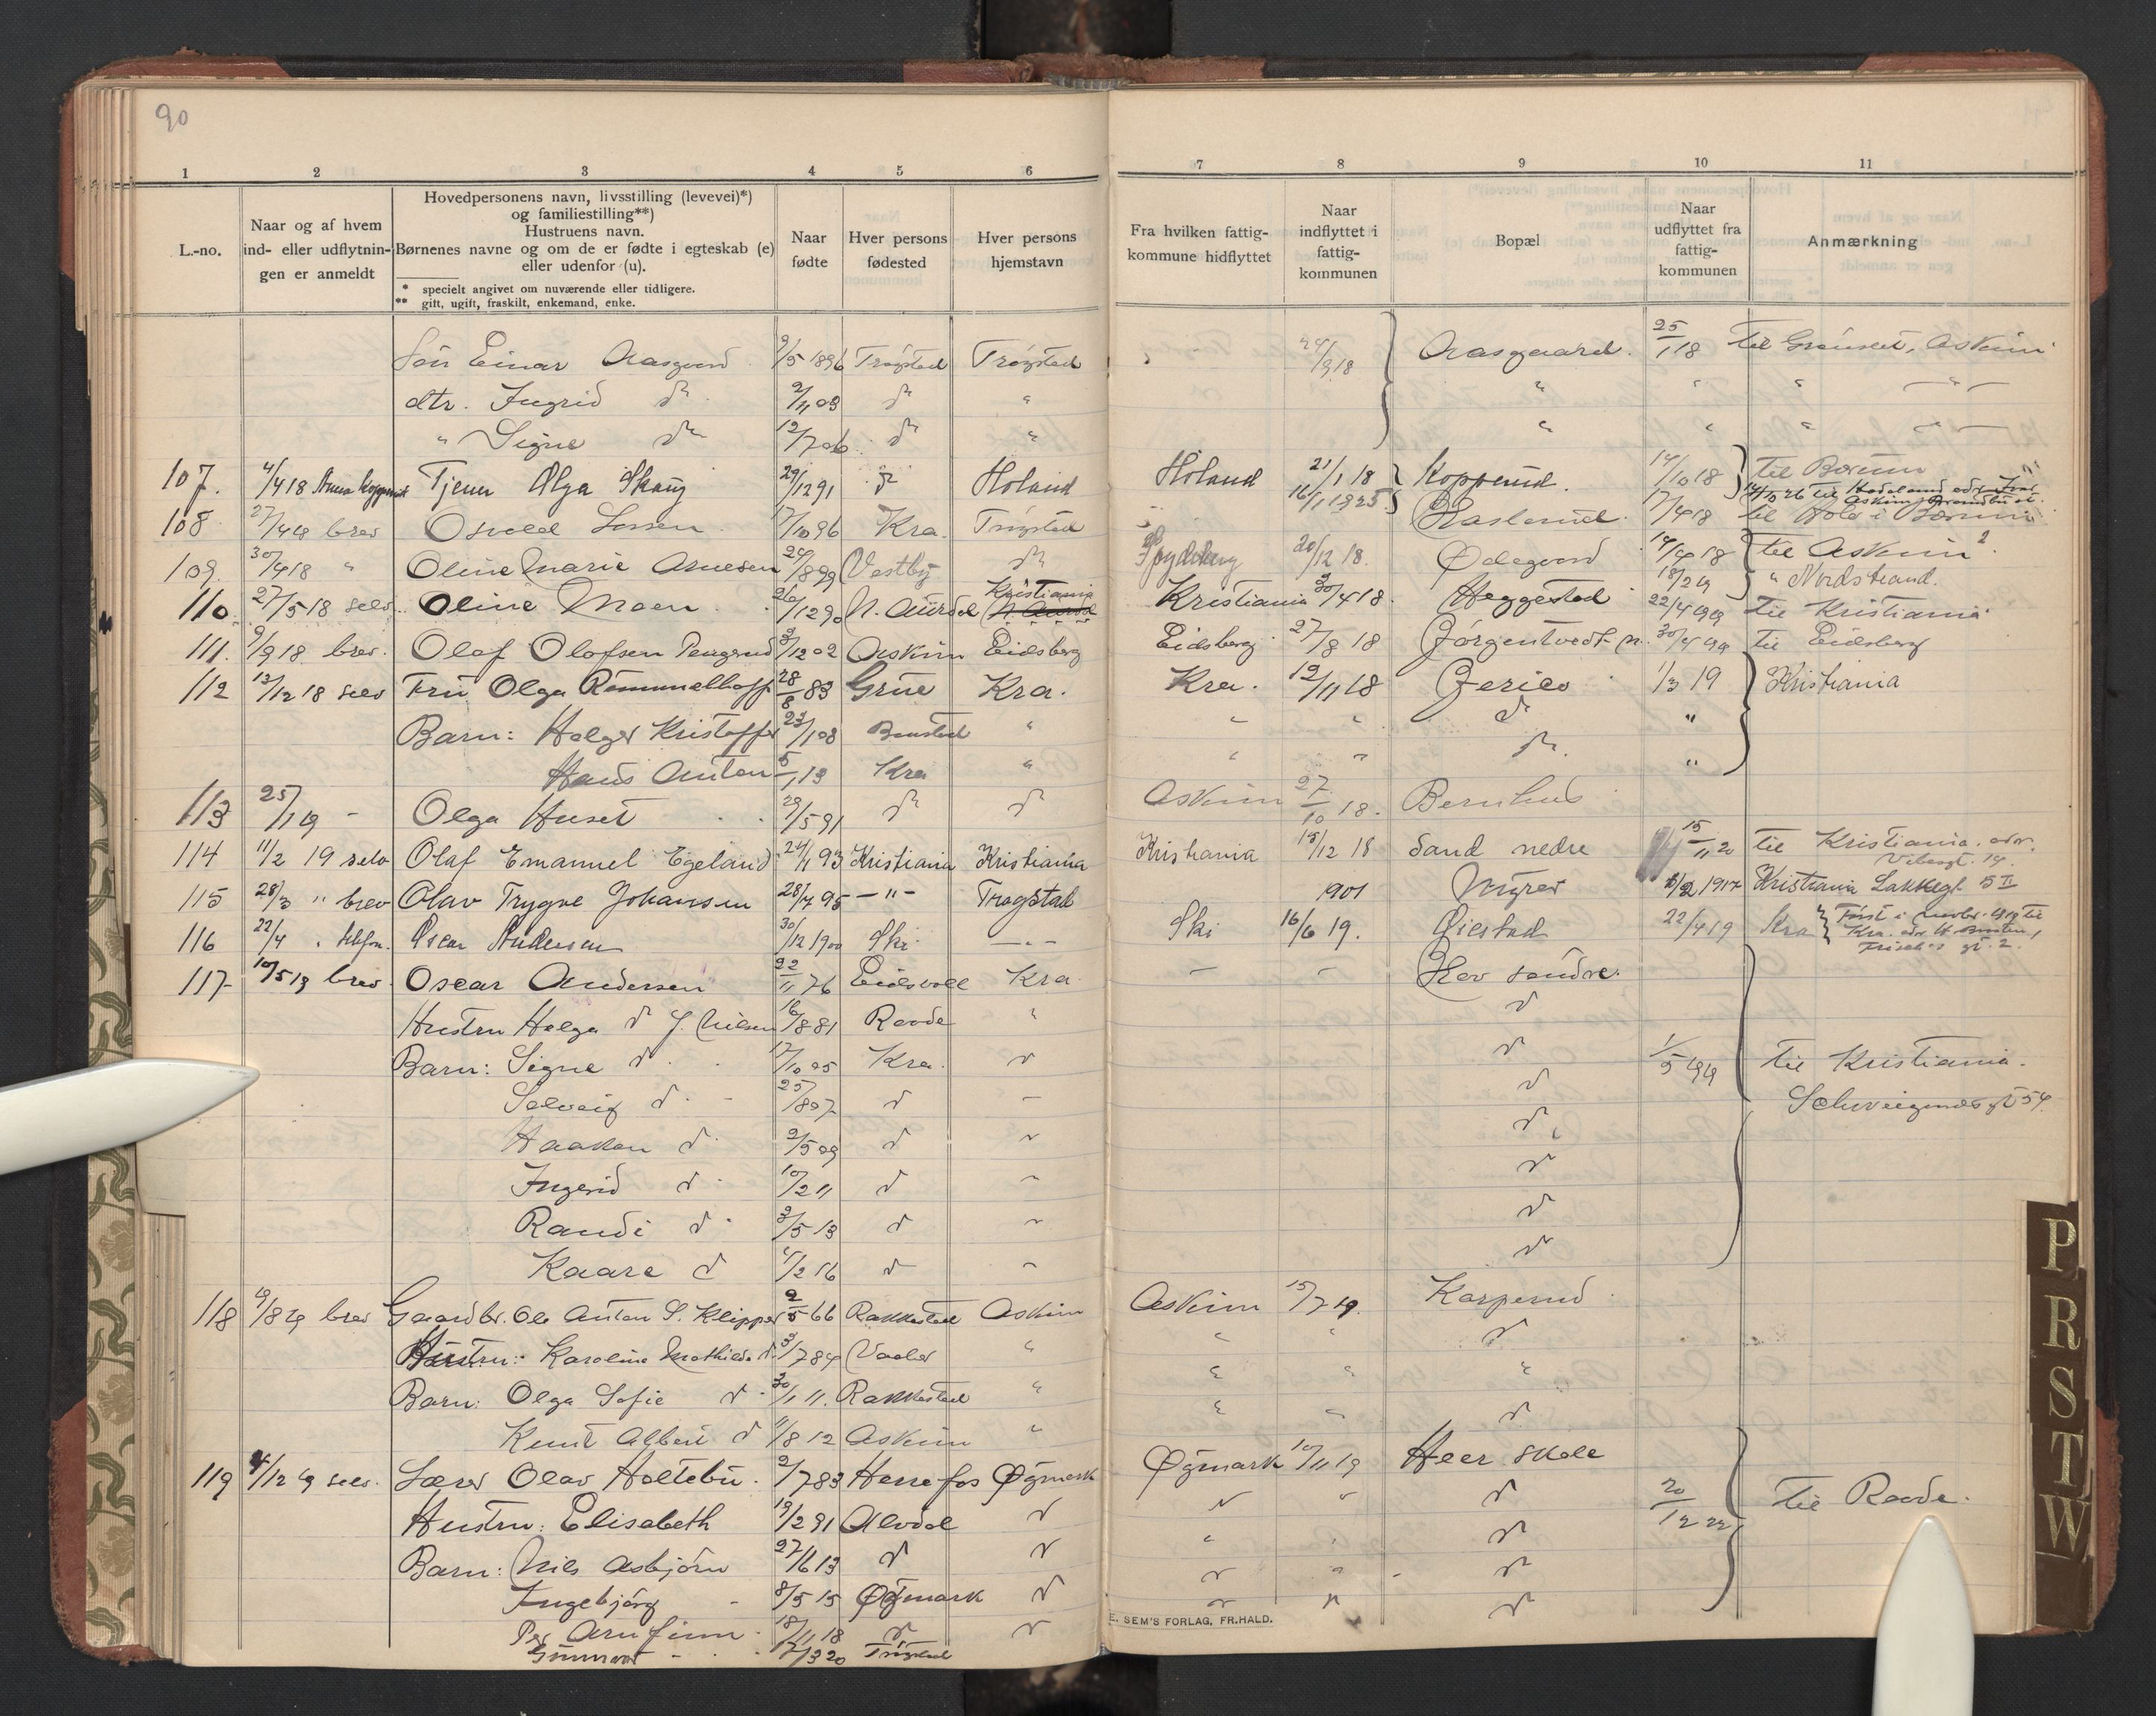 90
1 2 3 4 5 6 7 8 9 10 11
L.-no.
Naar og af hvem
ind- eller udflytnin-
gen er anmeldt
Hovedpersonens navn, livsstilling (levevei)*)
og familiestilling**)
Hustruens navn.
Børnenes navne og om de er fødte i egteskab (e)
eller udenfor (u).
* specielt angivet om nuværende eller tidligere.
** gift, ugift, fraskilt, enkemand, enke.
Naar
fødte
Hver persons
fødested
Hver persons
hjemstavn
Fra hvilken fattig-
kommune hidflyttet
Naar
indflyttet i
fattig-
kommunen
Bopæl
Naar
udflyttet fra
fattig-
kommunen
Anmærkning
Søn Einar Aasgaard 9/5 1896 Trøgstad Trøgstad 24/9 18 Aasgaard. 25/1 18 til Grønset, Askim
dtr. Ingrid do 2/11 03 do " " " "
" Signe do 12/7 06 do " " " "
107. 4/4 18 Tjener Olga Skaug 29/12 91 do Høland Høland 21/1 18 Kopperud. 14/10 18 til Bærum
16/1 1925
108 27/4 18 brev Osvald Larsen 17/10 96 Kra. Trøgstad Haslerud. 17/4 18 til Hole i Bærum
109. 30/4 18 " Oline Marie Arnesen 24/8 99 Vestby do Spydeberg 20/12 18. Ødegaard 14/4 18 til Askim
18/2 19 " Nordstrand.
110. 27/5 18 selv Oline Moen 26/12 90 N. Aurdal Kristiania N. Aurdal Kristiania 30/4 18. Heggestad 22/4 1919 til Kristiania
111. 9/9 18 brev. Olaf Olafsen 3/12 02 Askim Eidsberg Eidsberg 27/8 18 Jørgentvedt n. 30/4 19 til Eidsberg
112 13/12 18 selv Fru Olga Rommelhoff 28/8 83 Grue Kra. Kra. 12/11 18 Jerico 1/3 19 Kristiania
Barn: Holger Kristoffer 23/1 08 " " " do "
Hans Anton 5/1 13 Kra " " " do. "
113 25/1 19 - Olga Huset 29/5 91 do do Askim 27/10 18. Bernhus
114 11/2 19 selv Olaf Emanuel Egeland 24/11 93 Kristiania Kristiania Kristiania 15/12 18 Sand nedre 15/11 20 til Kristiania. adr.
Vibesgt. 14.
115 28/3 " brev Olav Trygve Johansen 28/7 95 -"- Trøgstad 1901 Myrer 6/2 1917 Kristiania Lakkegt. 5 II
116 22/4 " telefon. Oscar Andersen 30/12 1900 Ski -"- Ski 16/6 19. Øiestad 22/4 19 Kra
117 10/5 19 brev. Oscar Andersen 22/11 76 Eidsvoll Kra - - Hov søndre.
Hustru Helga do f. Nilsen 16/8 81 Raade " do
Barn: Signe do 17/10 05 Kra. do do 1/5 1919 til Kristiania.
Solveig do - 25/8 07 do - do Schweigaardsgt 54.
Haakon do 2/5 09 do " do
Ingerid do 10/2 11 do " do
Randi do 3/5 13 do " do
Kaare do 4/2 16 do " do
118 9/8 19 brev Gaardbr. Ole Anton S. Klipper 2/5 66 Rakkestad Askim Askim 15/7 19. Karperud
Hustru: Karoline Mathilde do 3/7 84 Vaaler " " " do
Barn: Olga Sofie do 30/1 11. Rakkestad " " " "
Knut Albert do 11/8 12 Askim " " " do
119 4/12 19 selv. Lærer Olav Holtebu 2/7 83 Herrefos Øymark Øymark 10/11 19 Heer skole
Hustru: Elisabeth 19/2 91 Alvdal do do do do 20/12 22 til Raade.
Barn: Nils Asbjørn 27/6 13 do do " " do
Ingebjørg - 8/5 15 Øymark do do " do
Per Arnfinn 18/11 18 do do do " do
Gunnvor - 17/3 20 Trøgstad
E. SEM'S FORLAG, FR.HALD.
P
R
S
T
W